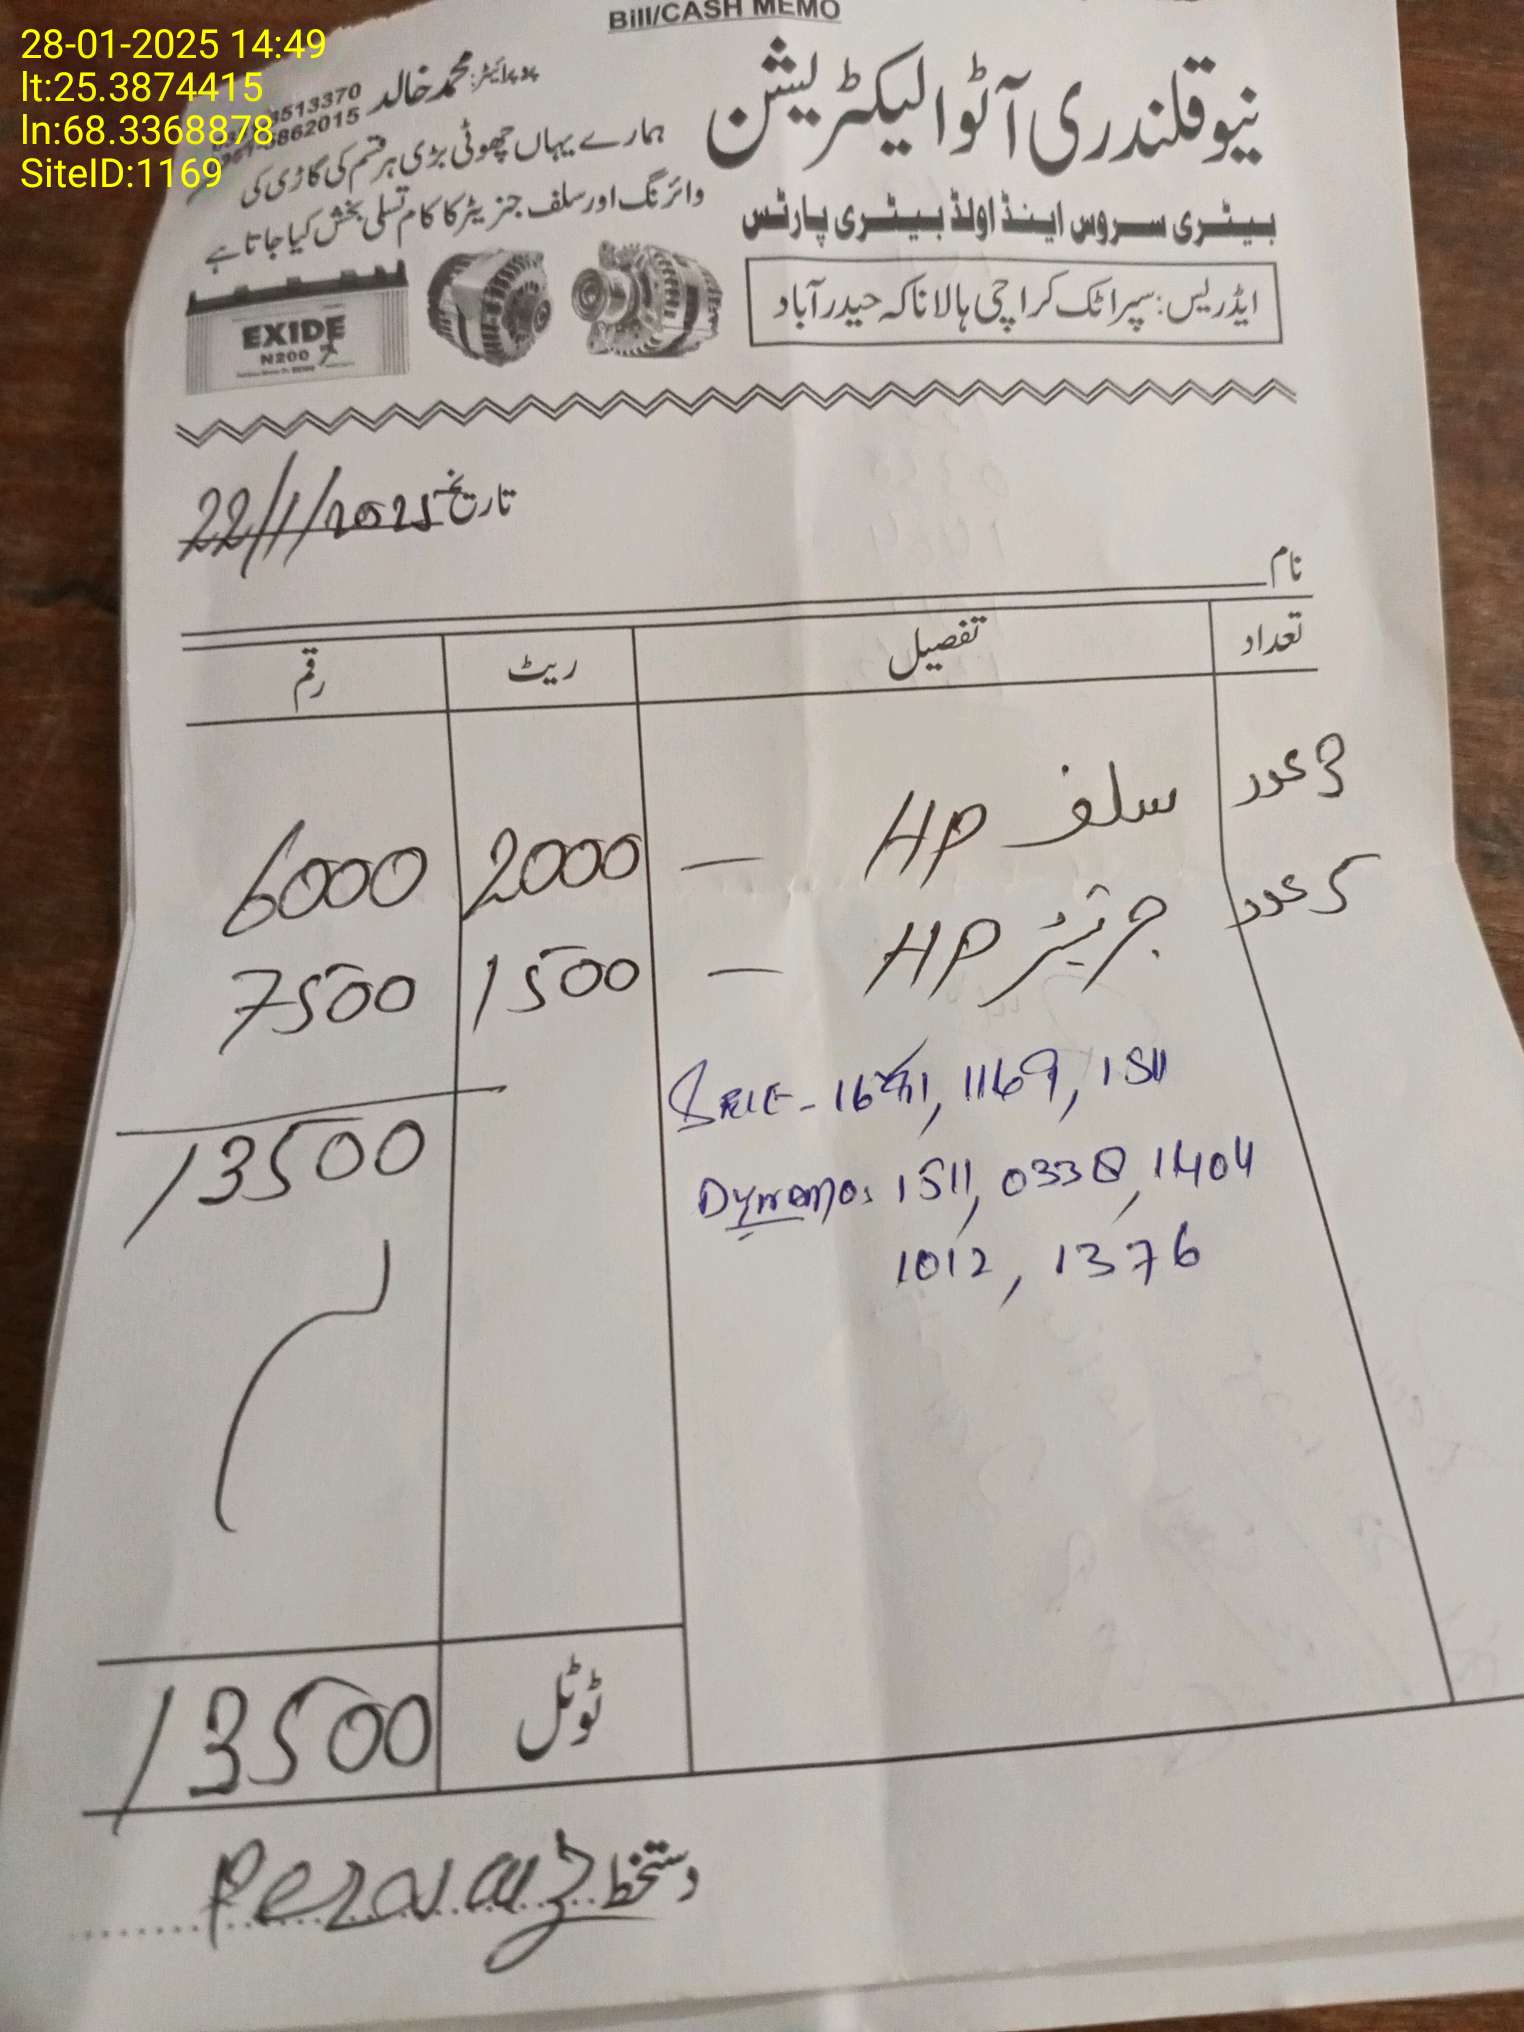 28-01-2025 14:49
lt:25.3874415
ln:68.3368878
SiteID:1169
Bill/CASH MEMO
نیو قلندری آٹو الیکٹریشن
پروپرائیٹر: محمد خالد
ہمارے یہاں چھوٹی بڑی ہر قسم کی گاڑی کی
وائرنگ اور سلف جنریٹر کا کام تسلی بخش کیا جاتا ہے
بیٹری سروس اینڈ اولڈ بیٹری پارٹس
ایڈریس: سپرا ٹک کراچی ہالا ناکہ حیدرآباد
EXIDE
N200
تاریخ 22/1/2025
نام
تعداد تفصیل ریٹ رقم
3 عدد سلف HP — 2000 6000
5 عدد جرنیٹر HP — 1500 7500
13500
1169, 1511
Dynamo: 1511, 0338, 1404
1012, 1376
ٹوٹل 13500
دستخط